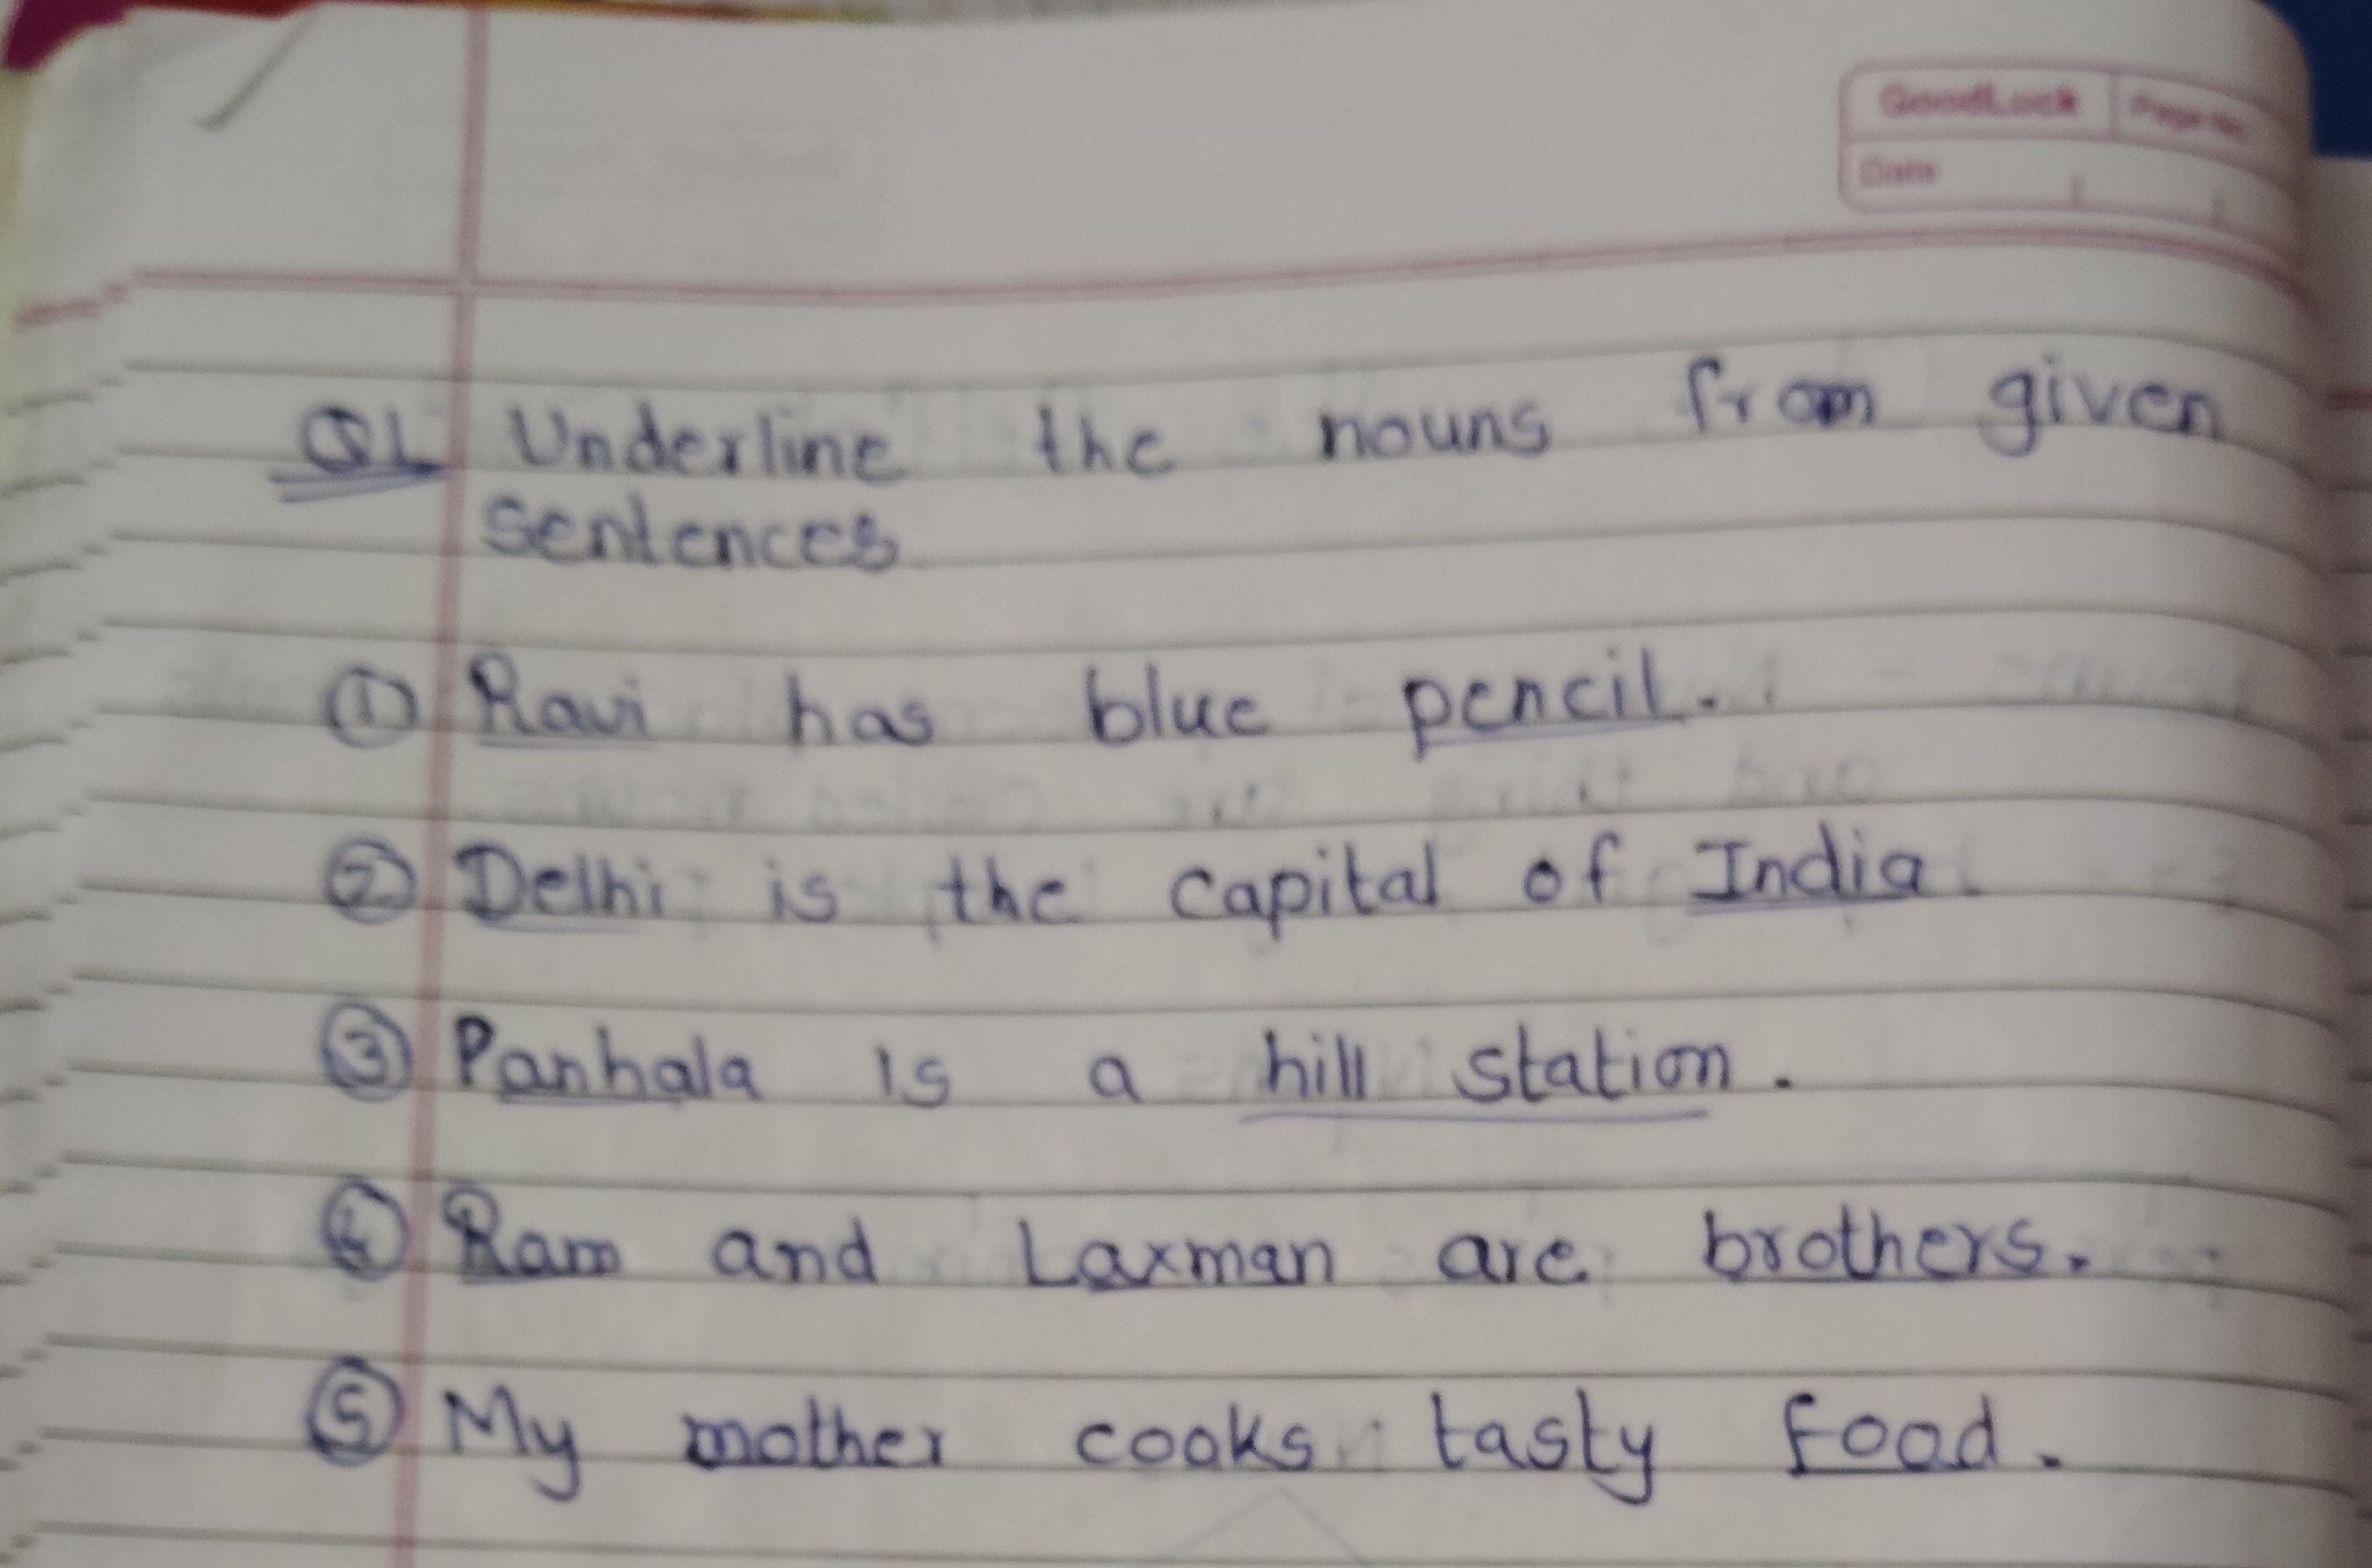 GoodLuck Page No.
Date
Q1 Underline the nouns from given
sentences
① Ravi has blue pencil.
② Delhi is the capital of India
③ Panhala is a hill station.
④ Ram and Laxman are brothers.
⑤ My mother cooks tasty food.